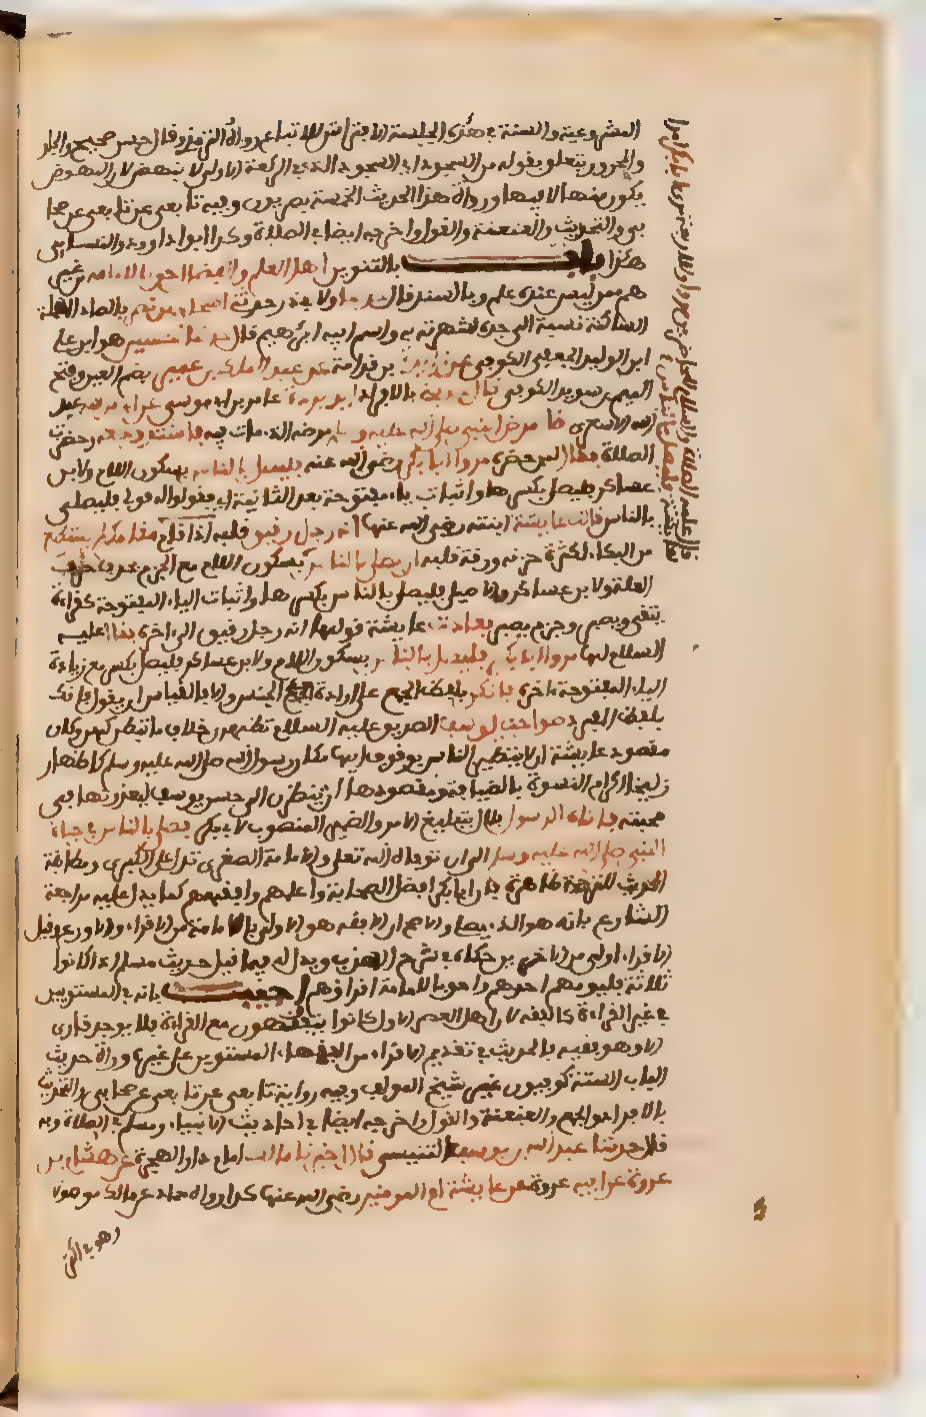 المشروعية والسنة في هذه الجلسة الافتراش للاتباع رواه الترمذي وقال حسن صحيح والجار
والمجرور يتعلق بقوله من السجود اي السجود الذي في الركعة الاولى لا ينهض لان النهوض
يكون منها لا فيها ورواة هذا الحديث الخمسة بصريون وفيه تابعي عن تابعي عن صحا
بي والتحديث والعنعنة والقول واخرجه ايضا في الصلاة وكذا ابو داوود والنسائي
هذا باب بالتنوين اهل العلم والفضل احق بالامامة من غير
هم ممن ليس عنده علم وبالسند قال حدثنا ولابي ذر حدثني اسحاق بن نصر بالصاد المهملة
الساكنة نسبة الى جده لشهرته به واسم ابيه ابراهيم قال حدثنا حسين هو ابن علي
ابن الوليد الجعفي الكوفي عن زائدة بن قدامة عن عبد الملك بن عمير بضم العين وفتح
الميم بن سويد الكوفي قال حدثني بالافراد ابو بردة عامر بن ابي موسى عن ابي موسى عبد
الله الاشعري قال مرض النبي صلى الله عليه وسلم مرضه الذي مات فيه فاشتد مرضه وحضرت
الصلاة فقال لمن حضره مروا ابا بكر رضي الله عنه فليصل بالناس بسكون اللام ولابن
عساكر فليصلي بكسرها واثبات ياء مفتوحة بعد الثانية اي فقولوا له قولي فليصلي
بالناس قالت عايشة ابنته رضي الله عنها انه رجل رقيق قلبه اذا قام مقامك لم يستطع
من البكاء لكثرة حزنه ورقة قلبه ان يصلي بالناس بسكون اللام مع الجزم بحذف حرف
العلة ولابن عساكر والاصيلي فليصلي بالناس بكسرها واثبات الياء المفتوحة كقراءة
يتقي ويصبر وجزم يصبر فعادت عايشة قولها انه رجل رقيق الى اخره فقال عليه
السلام لها مروا ابا بكر فليصل بالناس بسكون اللام ولابن عساكر فليصلي بكسر مع زيادة
الياء المفتوحة اخره فانكن بلفظ الجمع على ارادة الجنس والا فالقياس ان يقول فانك
بلفظ المفرد صواحب يوسف الصديق عليه السلام تظهرن خلاف ما تبطن كهن وكان
مقصود عايشة ان لا يتطير الناس بوقوف ابيها مكان رسول الله صلى الله عليه وسلم كاظهار
زليخا اكرام النسوة بالضيافة ومقصودها ان ينظرن الى حسن يوسف ليعذرنها في
محبته فاتاه الرسول بلال بتبليغ الامر والضمير المنصوب لابي بكر فصلى بالناس في حياة
النبي صلى الله عليه وسلم الى ان توفاه الله تعلى والامامة الصغرى تدل على الكبرى ومطابقة
الحديث للترجمة ظاهرة فان ابا بكر افضل الصحابة واعلمهم وافقههم كما يدل عليه مراجعة
الشارع بانه هو الذي يصلي والاصح ان الافقه هو الاولى بالامامة من الاقرا والاورع وقيل
الاقرا اولى من الاخرين حكاه في شرح المهذب ويدل له فيما قيل حديث مسلم اذا كانوا
ثلاثة فليؤمهم احدهم واحق بالامامة اقراؤهم اجيب بانه في المستويين
في غير القراءة كالفقه لان اهل العصر الاول كانوا يتفقهون مع القراءة فلا يوجد قارئ
الا وهو فقيه فالحديث في تقديم الاقرا من الفقهاء المستويين على غيره ورواة حديث
الباب الستة كوفيون غير شيخ المولف وفيه رواية تابعي عن تابعي عن صحابي والتحديث
بالافراد والجمع والعنعنة والقول واخرجه ايضا في احاديث الانبياء ومسلم في الصلاة وبه
قال حدثنا عبد الله بن يوسف التنيسي قال اخبرنا مالك امام دار الهجرة عن هشام بن
عروة عن ابيه عروة عن عايشة ام المومنين رضي الله عنها كذا رواه حماد عن مالك موصولا
وهو في اكثر